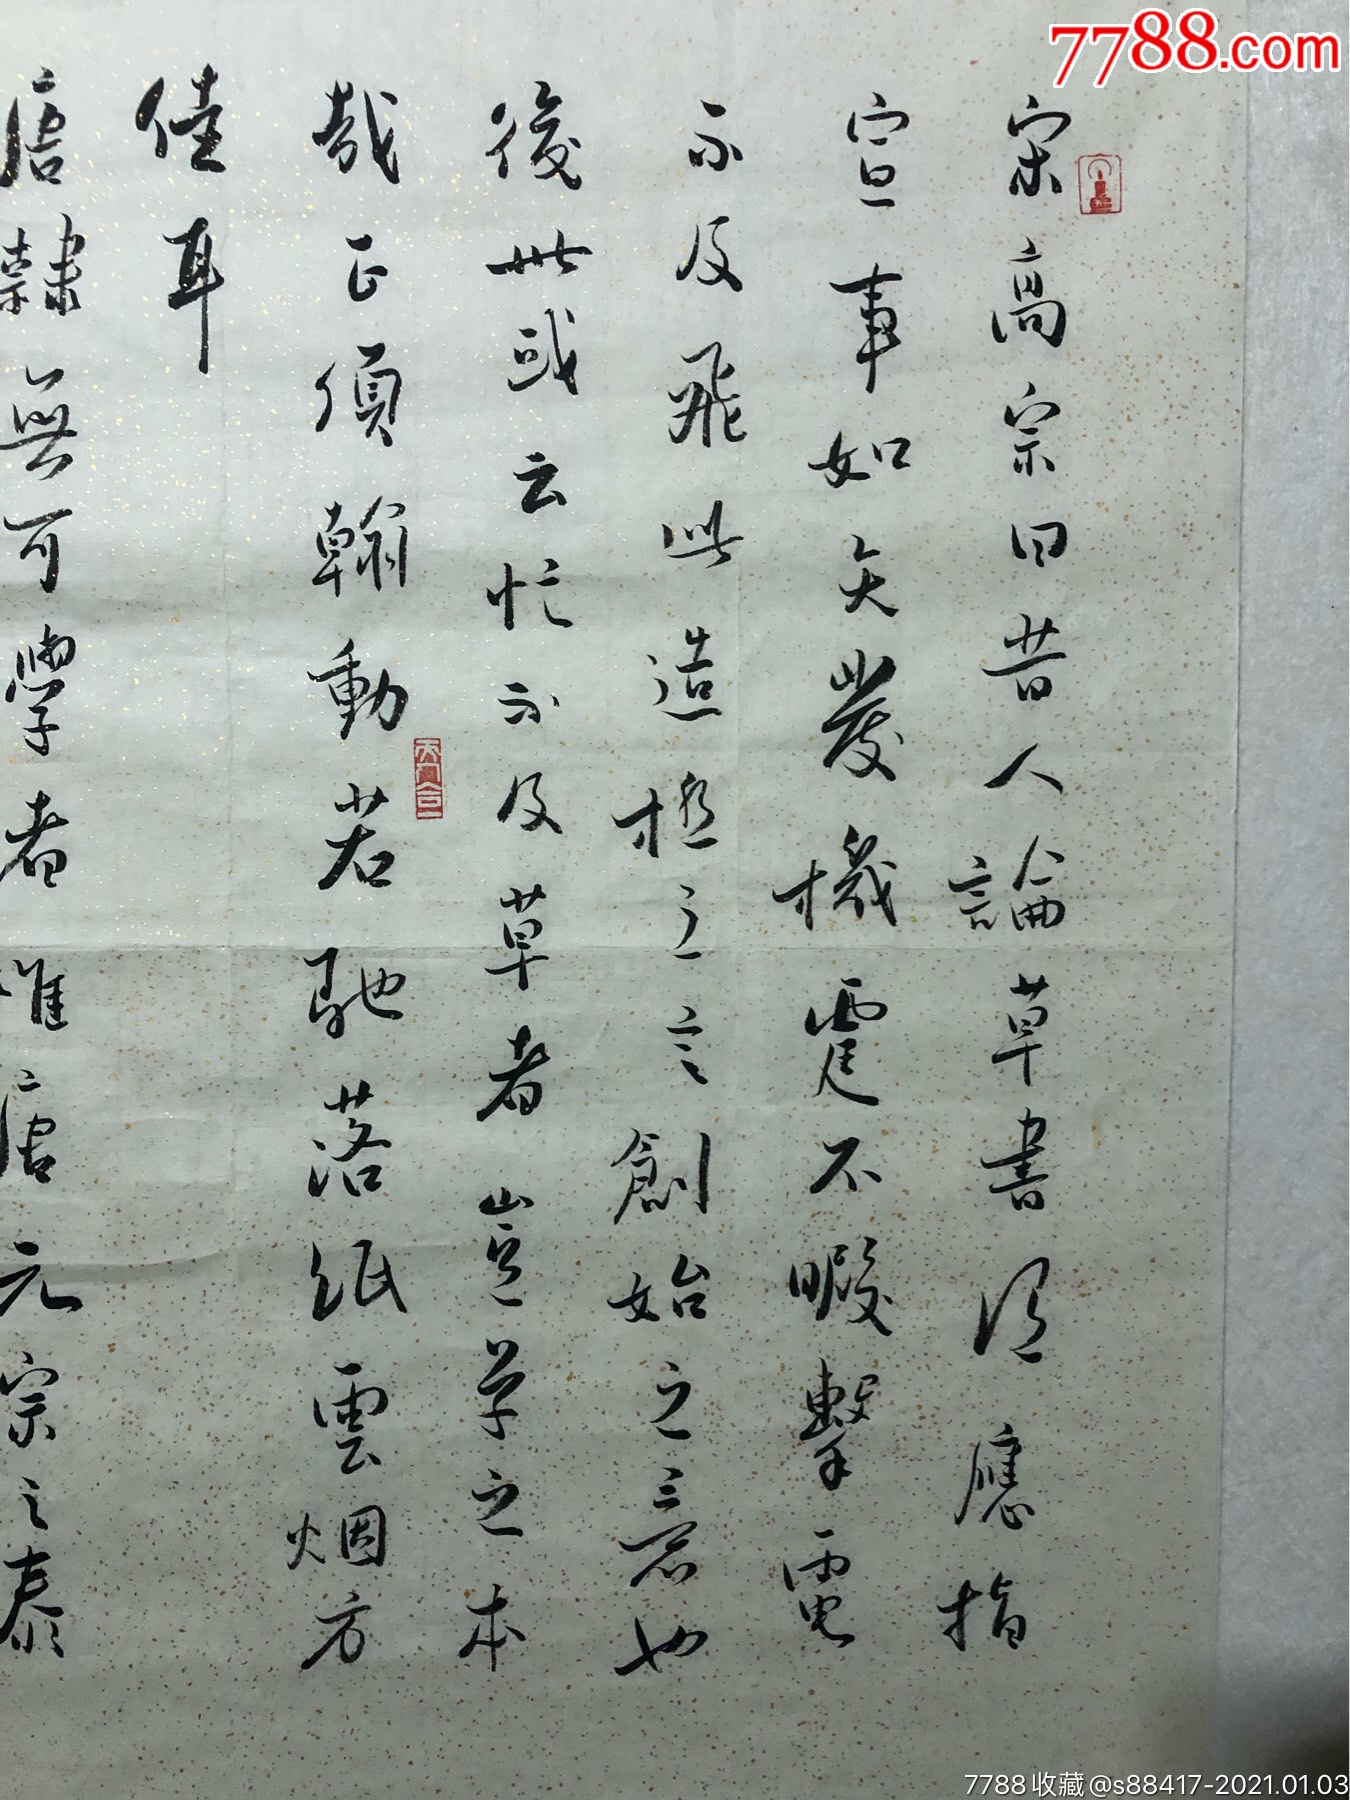 7788.com
宋高宗曰昔人論草書得應指
宣事如矢發機霆不暇擊電
不及飛此造極之言創始之意也
後世或云忙不及草者豈草之本
哉正須翰動若馳落紙雲烟方
佳耳
唐隸無可學者唯唐元宗之泰
天合一
7788收藏@s88417-2021.01.03